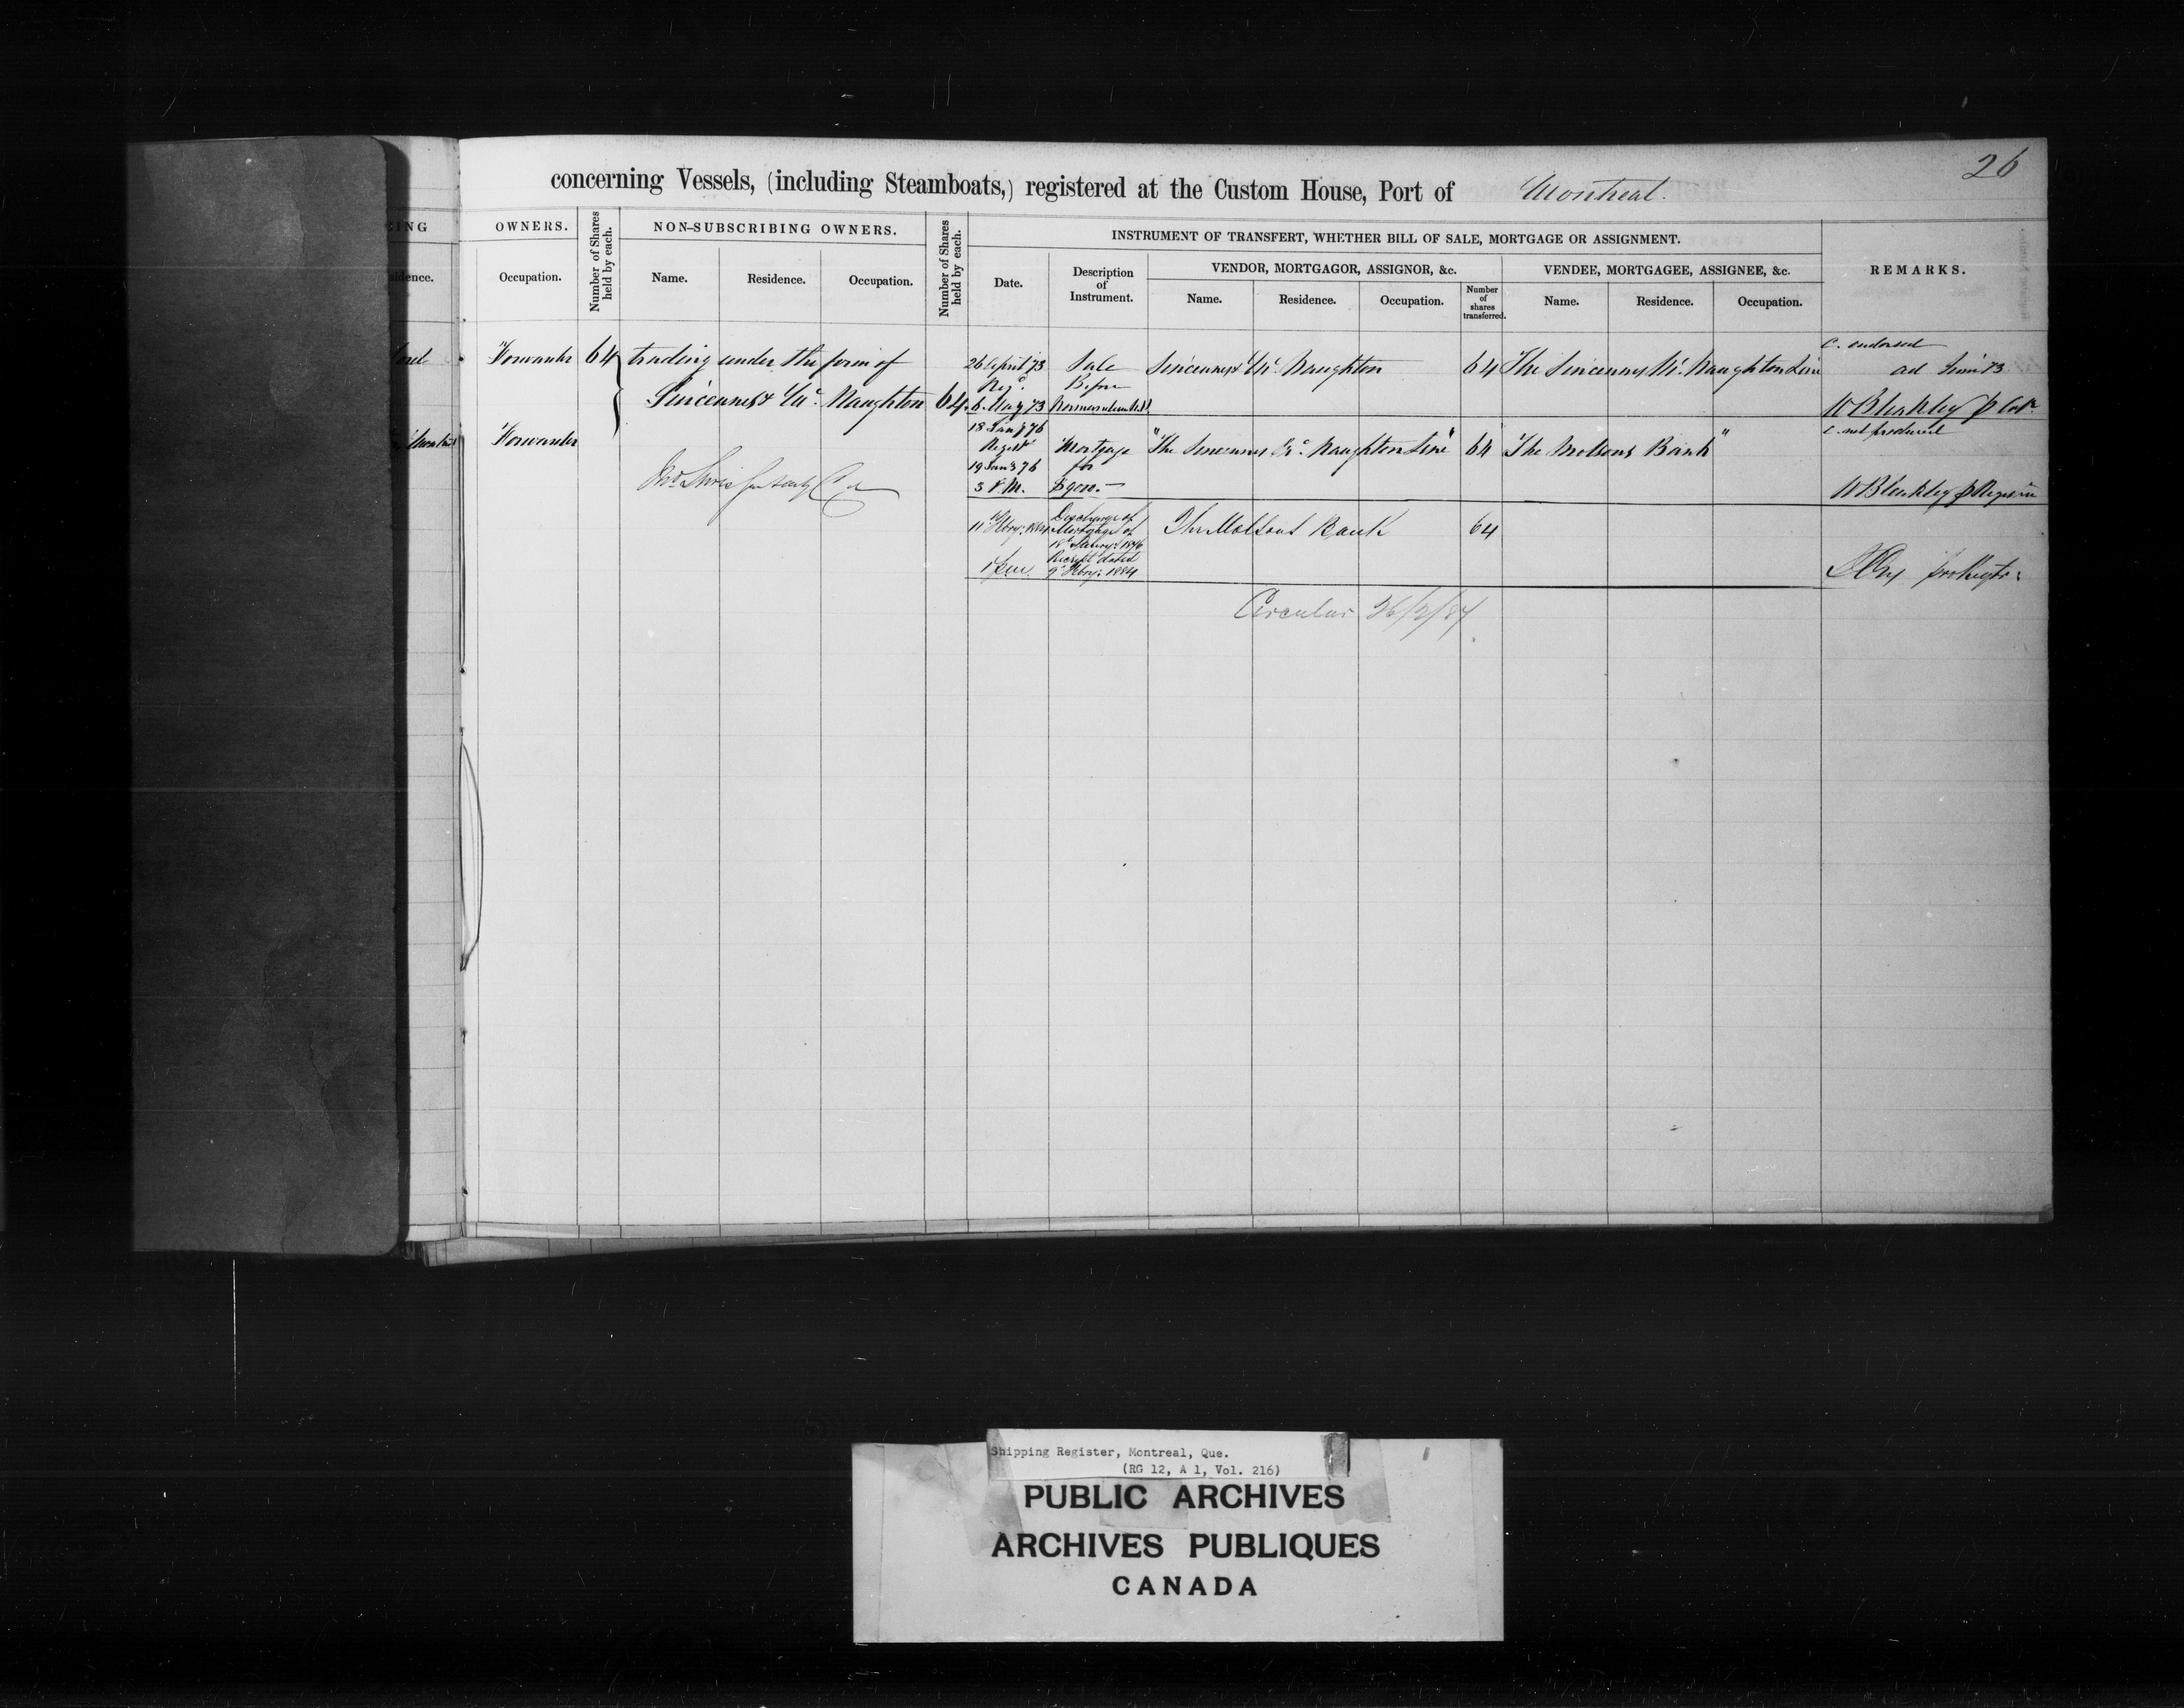 26
concerning Vessels, (including Steamboats,) registered at the Custom House, Port of Montreal.
OWNERS.
Number of Shares held by each.
NON-SUBSCRIBING OWNERS.
Number of Shares held by each.
INSTRUMENT OF TRANSFERT, WHETHER BILL OF SALE, MORTGAGE OR ASSIGNMENT.
REMARKS.
Occupation.
Name. Residence. Occupation.
Date.
Description of Instrument.
VENDOR, MORTGAGOR, ASSIGNOR, &c.
VENDEE, MORTGAGEE, ASSIGNEE, &c.
Name. Residence. Occupation.
Number of shares transferred.
Name. Residence. Occupation.
Forwarder 64 trading under the firm of
Sincennes & Mc Naughton 64
Forwarder
26 April 73 Sale Sincennes & Mc Naughton 64 The Sincennes Mc Naughton Line
C. endorsed
Regd. Before
6 May 73
W Bleakley
18 Jany 76
Regist Mortgage "The Sincennes Mc Naughton Line" 64 "The Molsons Bank"
C. not produced
19 Jany 76 for
3 P.M.
W Bleakley
11 Febry: 1884 Discharge of Mortgage of The Molsons Bank 64
18 Jany: 1876
Receipt dated
9 Febry: 1884
Circular 26/2/84
Shipping Register, Montreal, Que.
(RG 12, A 1, Vol. 216)
PUBLIC ARCHIVES
ARCHIVES PUBLIQUES
CANADA